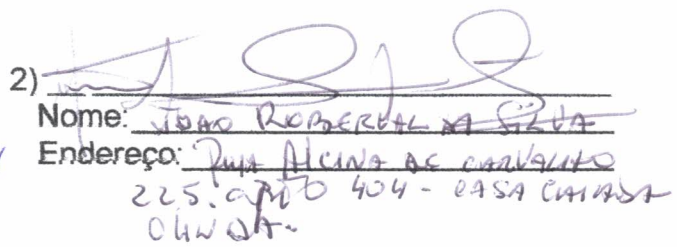 2)
Nome: JOÃO ROBERVAL DA SILVA
Endereço: RUA ALCINA DE CARVALHO
225. APTO 404 - CASA CAIADA
OLINDA.